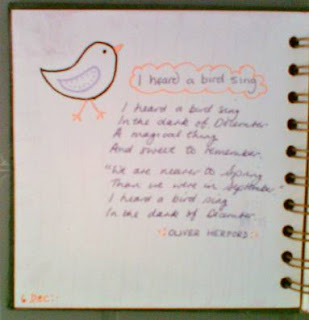 I heard a bird sing
I heard a bird sing
In the dark of December.
A magical thing
And sweet to remember.
"We are nearer to Spring
Than we were in September."
I heard a bird sing
In the dark of December.
OLIVER HERFORD
6 Dec::